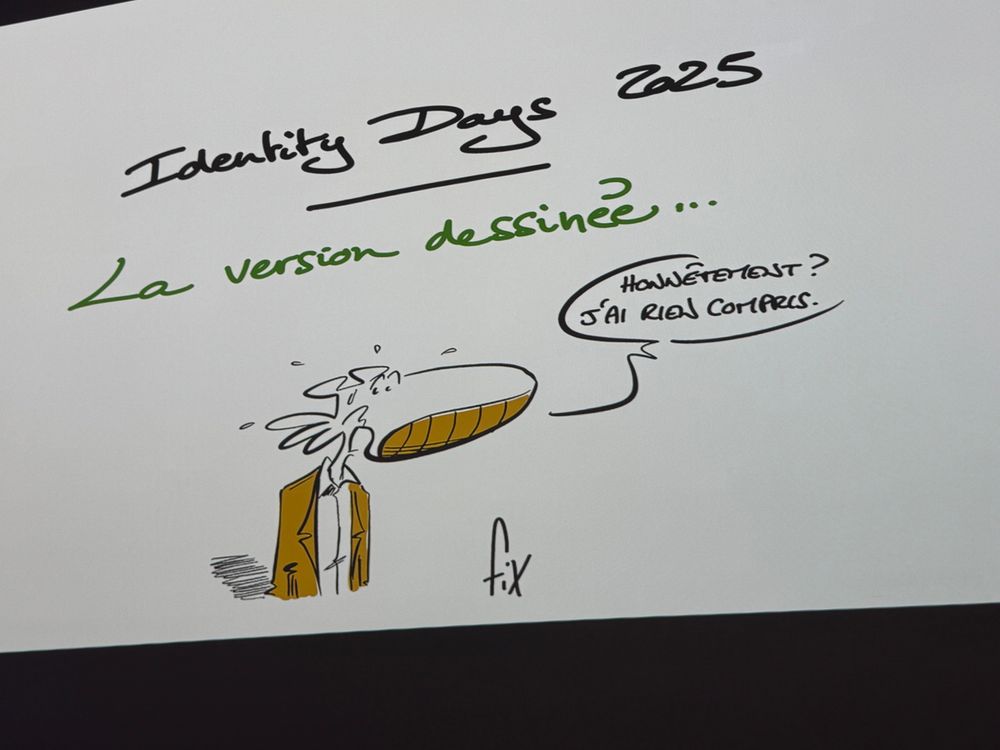 Identity Days 2025
La version dessinée...
HONNÊTEMENT ?
J'AI RIEN COMPRIS.
fix